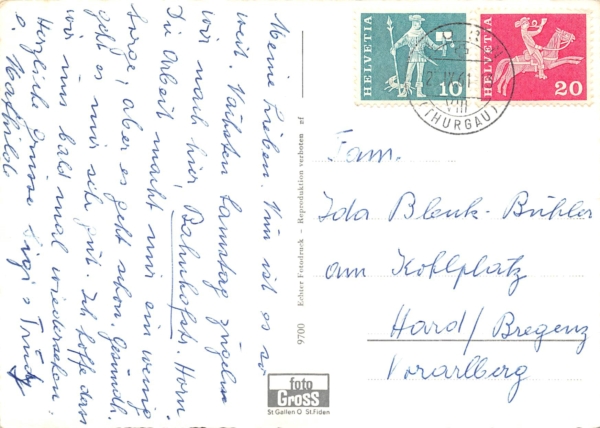 Meine Lieben. Nun ist es so
weit. Nächsten Samstag zügeln
wir nach hier, Bahnhofstr. Horn
Die Arbeit macht mir ein wenig
Sorge, aber es geht schon. Gesundh.
geht es mir sehr gut. Ich hoffe dass
wir uns bald mal wiedersehen.
Herzliche Grüsse Sigi & Trudy
& Mathilde
9700 Echter Fotodruck – Reproduktion verboten nf
foto
GROSS
St Gallen O St.Fiden
HELVETIA
10
HELVETIA
20
VIII
(THURGAU)
Fam.
Ida Blenk-Bühler
am Kohlplatz
Hard/Bregenz
Vorarlberg